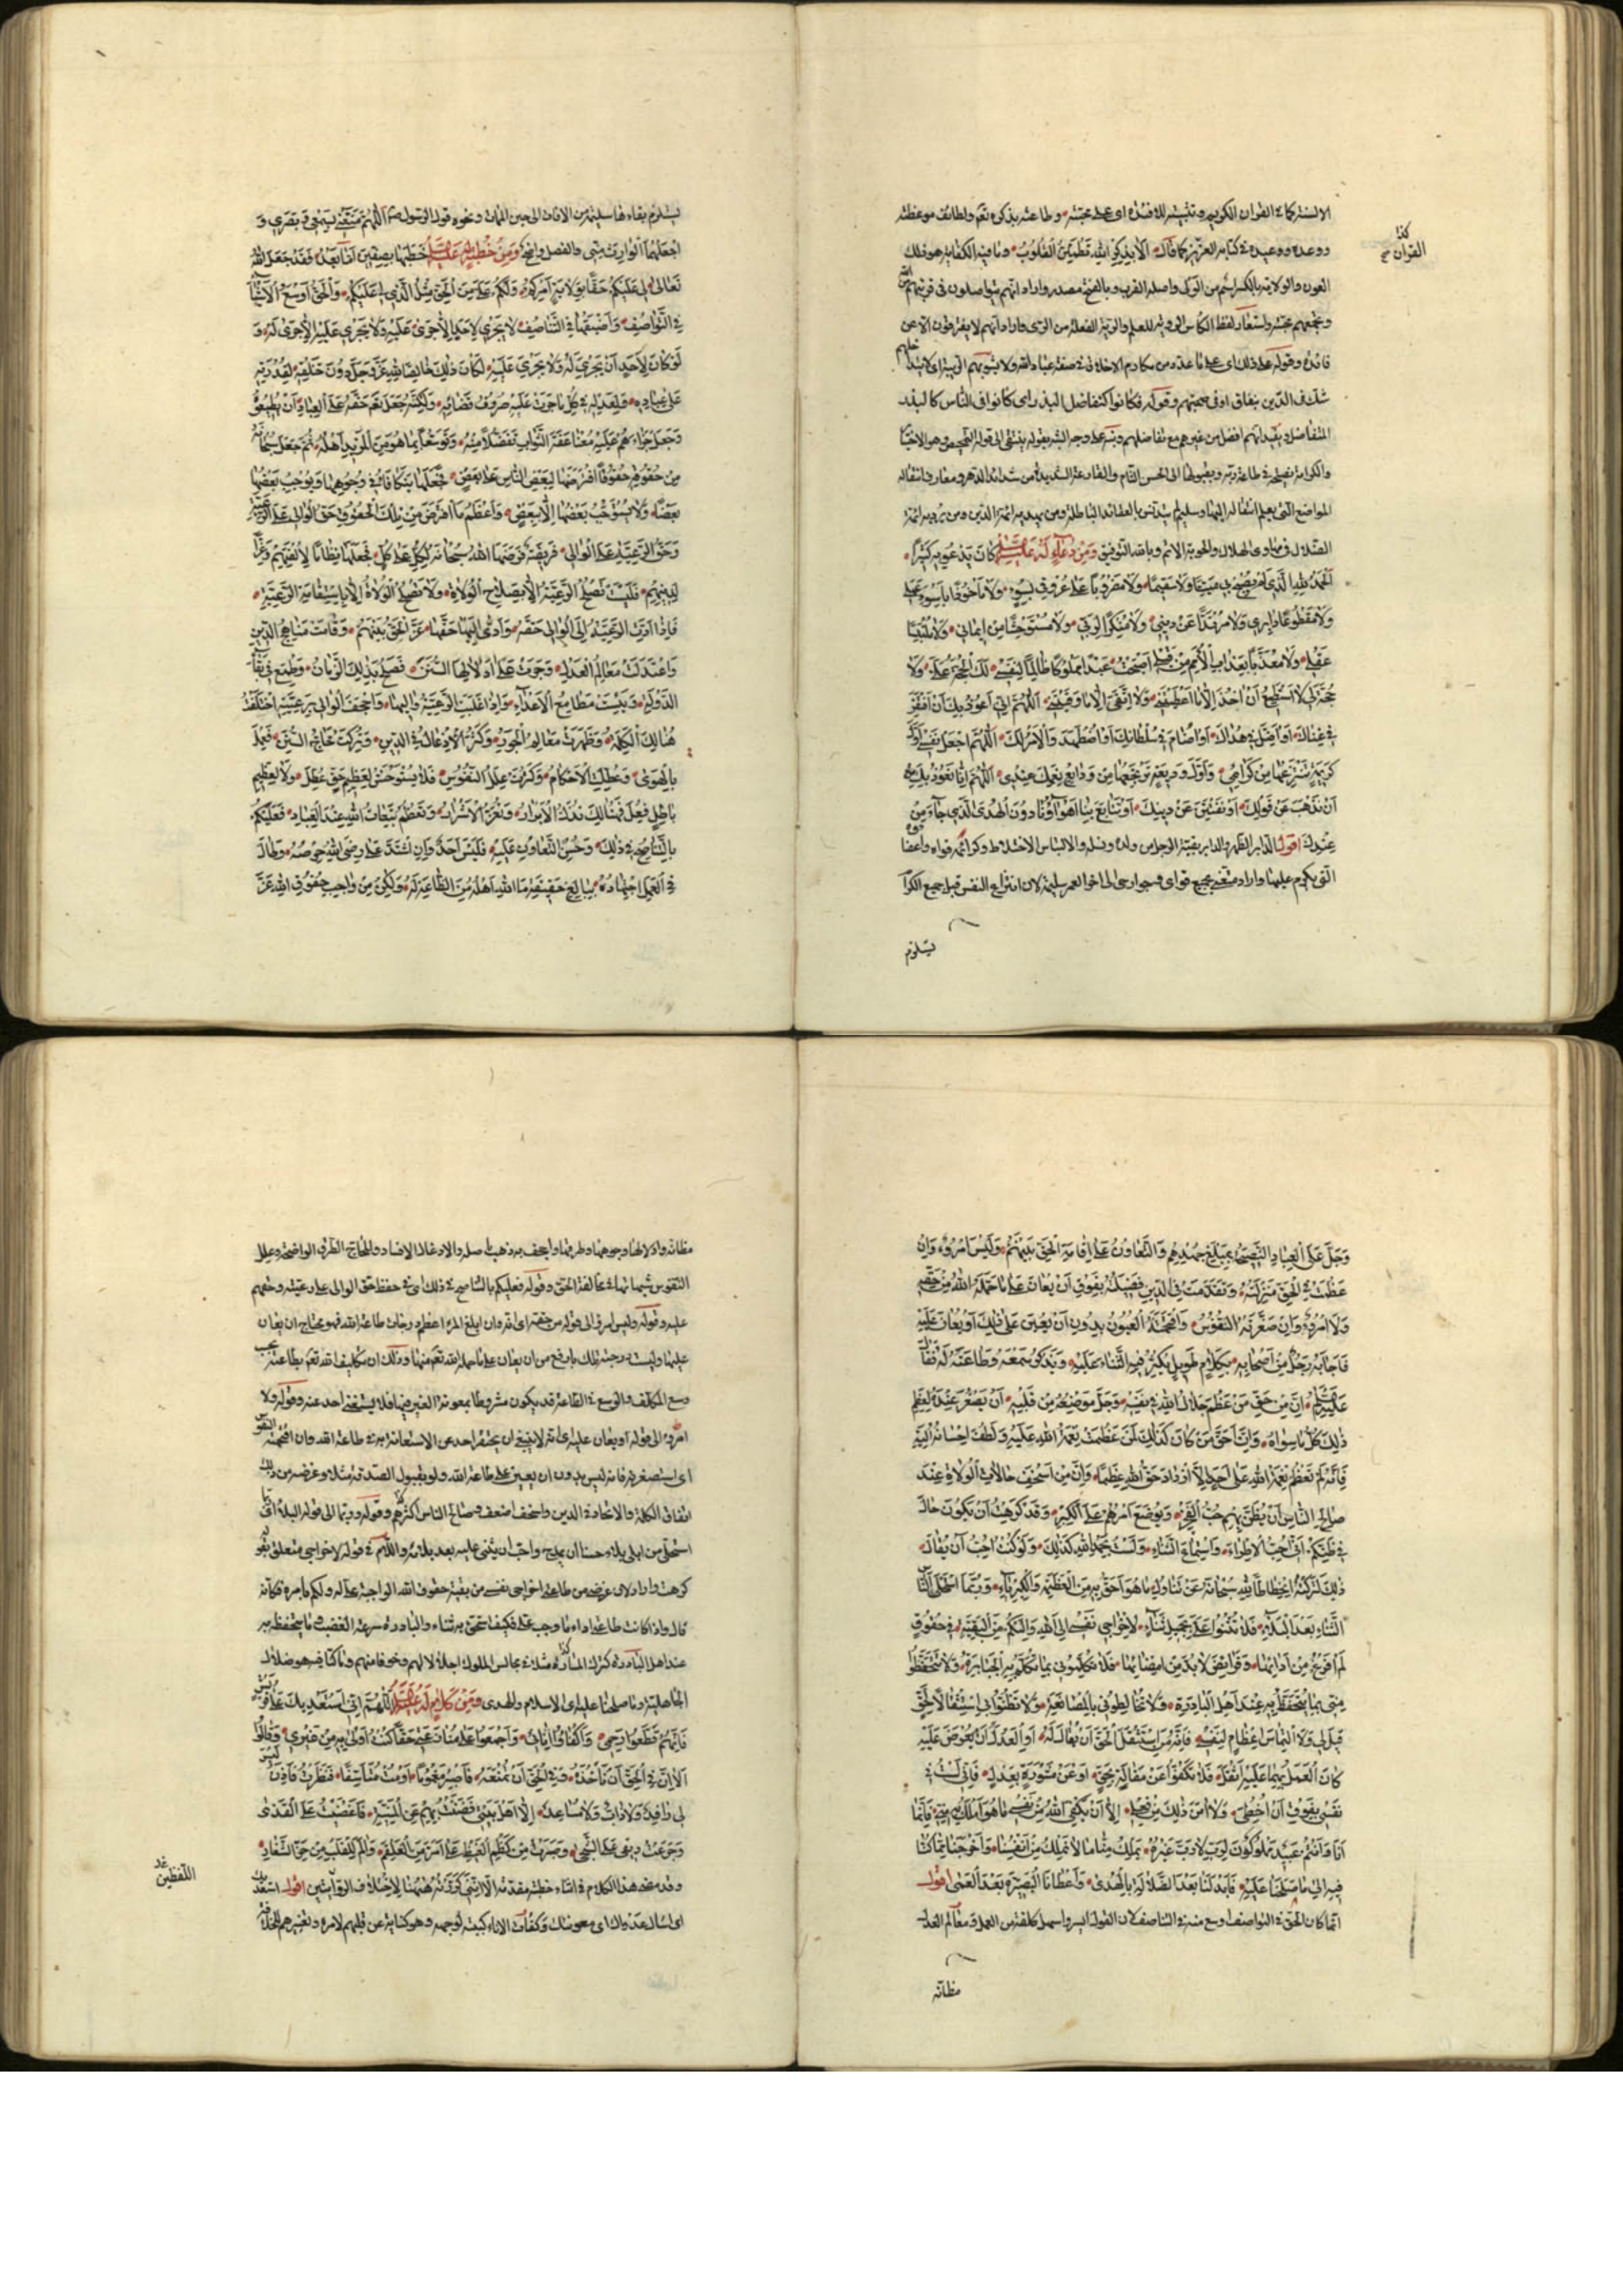 الالسنة كما فى القران الكريم وتثبيته للافئدة اى على محبته وطاعته بذكره نعم ولطائف موعظته
ووعده ووعيده فى كتابه العزيز كما قال الا بذكر الله تطمئن القلوب وما فيه الكفاية هو ذلك
العون والولاية بالكسر اسم من الولى واصله القرب وبالفتح مصدر واراد انهم يتواصلون فى قربهم من الله
وتجمعهم محبته واستعار لفظ الكأس الروية للعلم والرية الفعلة من الرى واراد انهم لا يفترقون الا عن
فائدة وقوله على ذلك اى على ما عدده من مكارم الاخلاق فى صفة عباد الله ولا يشوبهم الريبة اى لا يتداخلهم
شك فى الدين بنفاق او فى صحبتهم وقوله فكانوا كتفاضل البذر اى كانوا فى الناس كالبذر
المتفاضل ونبه انهم افضل من غيرهم مع تفاضلهم ونبه على وجه الشبه بقوله ينتقى الى قوله التمحيص وهو الاختبار
والكرامة نصيحته فى طاعة ربه وبقبولها الى الحسن التام والقارعة الشديدة من شدائد الدهر ومعارف انتقاله
المواضع التى يعلم انتقاله اليها وسليم لم يتدنس بالعقائد الباطلة ومن يهديه ائمة الدين ومن يرديه ائمة
الضلال فى مهاوى الهلاك والحوبة الاثم وبالله التوفيق ومن دعاء له عليه السلام كان يدعو به كثيرا
الحمد لله الذى لم يصبح بى ميتا ولا سقيما ولا مضروبا على عروقى بسوء ولا ماخوذا باسوء عملى
ولا مقطوعا دابرى ولا مرتدا عن دينى ولا منكرا لربى ولا مستوحشا من ايمانى ولا ملتبسا
عقلى ولا معذبا بعذاب الامم من قبلى اصبحت عبدا مملوكا ظالما لنفسى لك الحجة على ولا
حجة لى لا استطيع ان اخذ الا ما اعطيتنى ولا اتقى الا ما وقيتنى اللهم انى اعوذ بك ان افتقر
فى غناك او اضل فى هداك او اضام فى سلطانك او اضطهد والامر لك اللهم اجعل نفسى اول
كريمة تنتزعها من كرائمى واول وديعة ترتجعها من ودائع نعمك عندى اللهم انا نعوذ بك
ان نذهب عن قولك او نفتتن عن دينك او تتابع بنا اهواؤنا دون الهدى الذى جاء من
عندك اقول الدابر الظهر والدابر بقية الرجل من ولده ونسله والالتباس الاختلاط وكرائمه قواه واعضاؤه
التى يكرم عليها واراد متعنى بجميع قواى وجوارحى الى اخر العمر سليمة لان انتزاع النفس قبل جميع الكرائم
يستلزم
كذا
القران
يستلزم بقاءها سليمة من الافات الى حين الممات ونحوه قول الرسول ص اللهم متعنى بسمعى وبصرى و
اجعلهما الوارث منى والفصل واضح ومن خطبة له عليه السلام خطبها بصفين اما بعد فقد جعل الله
تعالى لى عليكم حقا بولاية امركم ولكم على من الحق مثل الذى لى عليكم والحق اوسع الاشياء
فى التواصف واضيقها فى التناصف لا يجرى لاحد الا جرى عليه ولا يجرى عليه الا جرى له و
لو كان لاحد ان يجرى له ولا يجرى عليه لكان ذلك خالصا لله عز وجل دون خلقه لقدرته
على عباده ولعدله فى كل ما جرت عليه صروف قضائه ولكنه جعل حقه على العباد ان يطيعوه
وجعل جزاءهم عليه مضاعفة الثواب تفضلا منه وتوسعا بما هو من المزيد اهله ثم جعل سبحانه
من حقوقه حقوقا افترضها لبعض الناس على بعض فجعلها تتكافأ فى وجوهها ويوجب بعضها
بعضا ولا يستوجب بعضها الا ببعض واعظم ما افترض من تلك الحقوق حق الوالى على الرعية
وحق الرعية على الوالى فريضة فرضها الله سبحانه لكل على كل فجعلها نظاما لالفتهم وعزا
لدينهم فليست تصلح الرعية الا بصلاح الولاة ولا تصلح الولاة الا باستقامة الرعية
فاذا ادت الرعية الى الوالى حقه وادى اليها حقها عز الحق بينهم وقامت مناهج الدين
واعتدلت معالم العدل وجرت على اذلالها السنن فصلح بذلك الزمان وطمع فى بقاء
الدولة ويئست مطامع الاعداء واذا غلبت الرعية واليها واجحف الوالى برعيته اختلفت
هنالك الكلمة وظهرت معالم الجور وكثر الادغال فى الدين وتركت محاج السنن فعمل
بالهوى وعطلت الاحكام وكثرت علل النفوس فلا يستوحش لعظيم حق عطل ولا لعظيم
باطل فعل فهنالك تذل الابرار وتعز الاشرار وتعظم تبعات الله عند العباد فعليكم
بالتناصح فى ذلك وحسن التعاون عليه فليس احد وان اشتد على رضى الله حرصه وطال
فى العمل اجتهاده ببالغ حقيقة ما الله اهله من الطاعة له ولكن من واجب حقوق الله عز
وجل على العباد النصيحة بمبلغ جهدهم والتعاون على اقامة الحق بينهم وليس امرؤ وان
عظمت فى الحق منزلته وتقدمت فى الدين فضيلته بفوق ان يعان على ما حمله الله من حقه
ولا امرؤ وان صغرته النفوس واقتحمته العيون بدون ان يعين على ذلك او يعان عليه
فاجابه رجل من اصحابه بكلام طويل يكثر فيه الثناء عليه ويذكر سمعه وطاعته له فقال
عليه السلام ان من حق من عظم جلال الله فى نفسه وجل موضعه من قلبه ان يصغر عنده لعظم
ذلك كل ما سواه وان احق من كان كذلك لمن عظمت نعمة الله عليه ولطف احسانه اليه
فانه لم تعظم نعمة الله على احد الا ازداد حق الله عليه عظما وان من اسخف حالات الولاة عند
صالح الناس ان يظن بهم حب الفخر ويوضع امرهم على الكبر وقد كرهت ان يكون جال
فى ظنكم انى احب الاطراء واستماع الثناء ولست بحمد الله كذلك ولو كنت احب ان يقال
ذلك لتركته انحطاطا لله سبحانه عن تناول ما هو احق به من العظمة والكبرياء وربما استحلى الناس
الثناء بعد البلاء فلا تثنوا على بجميل ثناء لاخراجى نفسى الى الله واليكم من البقية فى حقوق
لم افرغ من ادائها وفرائض لا بد من امضائها فلا تكلمونى بما تكلم به الجبابرة ولا تتحفظوا
منى بما يتحفظ به عند اهل البادرة ولا تخالطونى بالمصانعة ولا تظنوا بى استثقالا لحق
قيل لى ولا التماس اعظام لنفسى فانه من استثقل الحق ان يقال له او العدل ان يعرض عليه
كان العمل بهما عليه اثقل فلا تكفوا عن مقالة بحق او عن مشورة بعدل فانى لست فى
نفسى بفوق ان اخطئ ولا امن ذلك من فعلى الا ان يكفى الله من نفسى ما هو املك به منى فانما
انا وانتم عبيد مملوكون لرب لا رب غيره يملك منا ما لا نملك من انفسنا واخرجنا مما كنا
فيه الى ما صلحنا عليه فابدلنا بعد الضلالة بالهدى واعطانا البصيرة بعد العمى اقول
انما كان الحق فى التواصف اوسع منه فى التناصف لان القول ايسر واسهل كلفة من العمل ومعالم العدل
مظانه
مظانه واذلالها وجوهها وطرقها واجحف به ذهب باصله والادغال الافساد والمحاج الطرق الواضحة وعلل
النفوس شبهاتها فى مخالفة الحق وقوله فعليكم بالتناصح فى ذلك اى فى حفظ حق الوالى على رعيته وحقهم
عليه وقوله وليس امرؤ الى قوله من حقه اى انه وان ابلغ المرء اعظم درجات طاعة الله فهو محتاج ان يعان
عليها وليست درجته تلك بارفع من ان يعان على ما حمله الله تعالى منها وذلك ان تكليف الله تعالى بطاعته بحسب
وسع المكلف والوسع فى الطاعة قد يكون مشروطا بمعونة الغير فيها فلا يستغنى احد عنه وقوله ولا
امرؤ الى قوله او يعان عليه اى انه لا ينبغى ان يحتقر احد عن الاستعانة به فى طاعة الله وان اقتحمته النفوس
اى استصغرته فانه ليس بدون ان يعين على طاعة الله ولو بقبول الصدقة مثلا وغرضه من ذلك
اتفاق الكلمة والاتحاد فى الدين واسخف اضعف وصالح الناس اكثرهم وقوله وربما الى قوله البلاء اى
استحلى من ابلى بلاء حسنا ان يمدح واحب ان يثنى عليه بعد بلائه واللام فى قوله لاخراجى متعلق بقوله
كرهت واراد لاى غرضه من طاعتى اخراجى نفسى من بقية حقوق الله الواجبة على له ولكم بامره فكانه
قال واذا كانت طاعتى اداء ما وجب على فكيف استحق به ثناء والبادرة سرعة الغضب وما يتحفظ به
عند اهل البادرة كترك المسارة مثلا فى مجالس الملوك اجلالا لهم وخوفا منهم وما كنا فيه هو ضلال
الجاهلية وما صلحنا عليه اى الاسلام والهدى ومن كلام له عليه السلام اللهم انى استعديك على قريش
فانهم قطعوا رحمى واكفأوا انائى واجمعوا على منازعتى حقا كنت اولى به من غيرى وقالوا
الا ان فى الحق ان تاخذه وفى الحق ان تمنعه فاصبر مغموما او مت متأسفا فنظرت فاذن ليس
لى رافد ولا ذاب ولا مساعد الا اهل بيتى فضننت بهم عن المنية فاغضيت على القذى
وجرعت ريقى على الشجى وصبرت من كظم الغيظ على امر من العلقم والم للقلب من حز الشفار
وقد مضى هذا الكلام فى اثناء خطبة متقدمة الا انى كررته ههنا لاختلاف الروايتين اقول استعديك
اى اسئال عدواك اى معونتك وكفأت الاناء كببته لوجهه وهو كناية عن قلبهم لامره وتغييرهم للخلافة
اللفظين